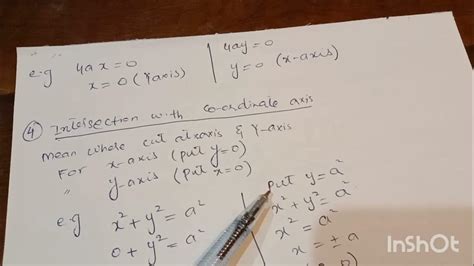 e.g 4ax=0 | 4ay=0
x=0 (Y axis) | y=0 (x-axis)
④ Intersection with co-ordinate axis
Mean where cut at xaxis & Y-axis
For x-axis (put y=0)
〃 y-axis (put x=0)
e.g x²+y²=a²
0+y²=a²
put y=a²
x²+y²=a²
x²=a²
x=±a
0)
InShOt